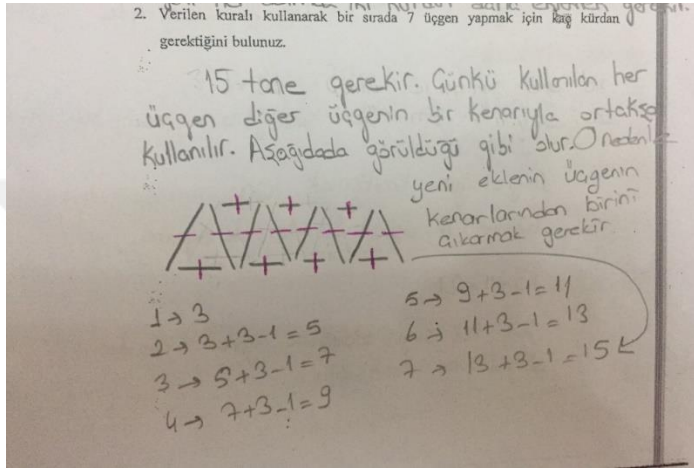 2. Verilen kuralı kullanarak bir sırada 7 üçgen yapmak için kaç kürdan
gerektiğini bulunuz.
15 tane gerekir. Günkü kullanılan her
üçgen diğer üçgenin bir kenarıyla ortaksa
kullanılır. Aşağıdada görüldüğü gibi olur. O nedenle
yeni eklenin üçgenin
kenarlarından birini
çıkarmak gerekir
1→ 3
2→ 3+3-1=5
3→ 5+3-1=7
4→ 7+3-1=9
5→ 9+3-1=11
6→ 11+3-1=13
7→ 13+3-1=15